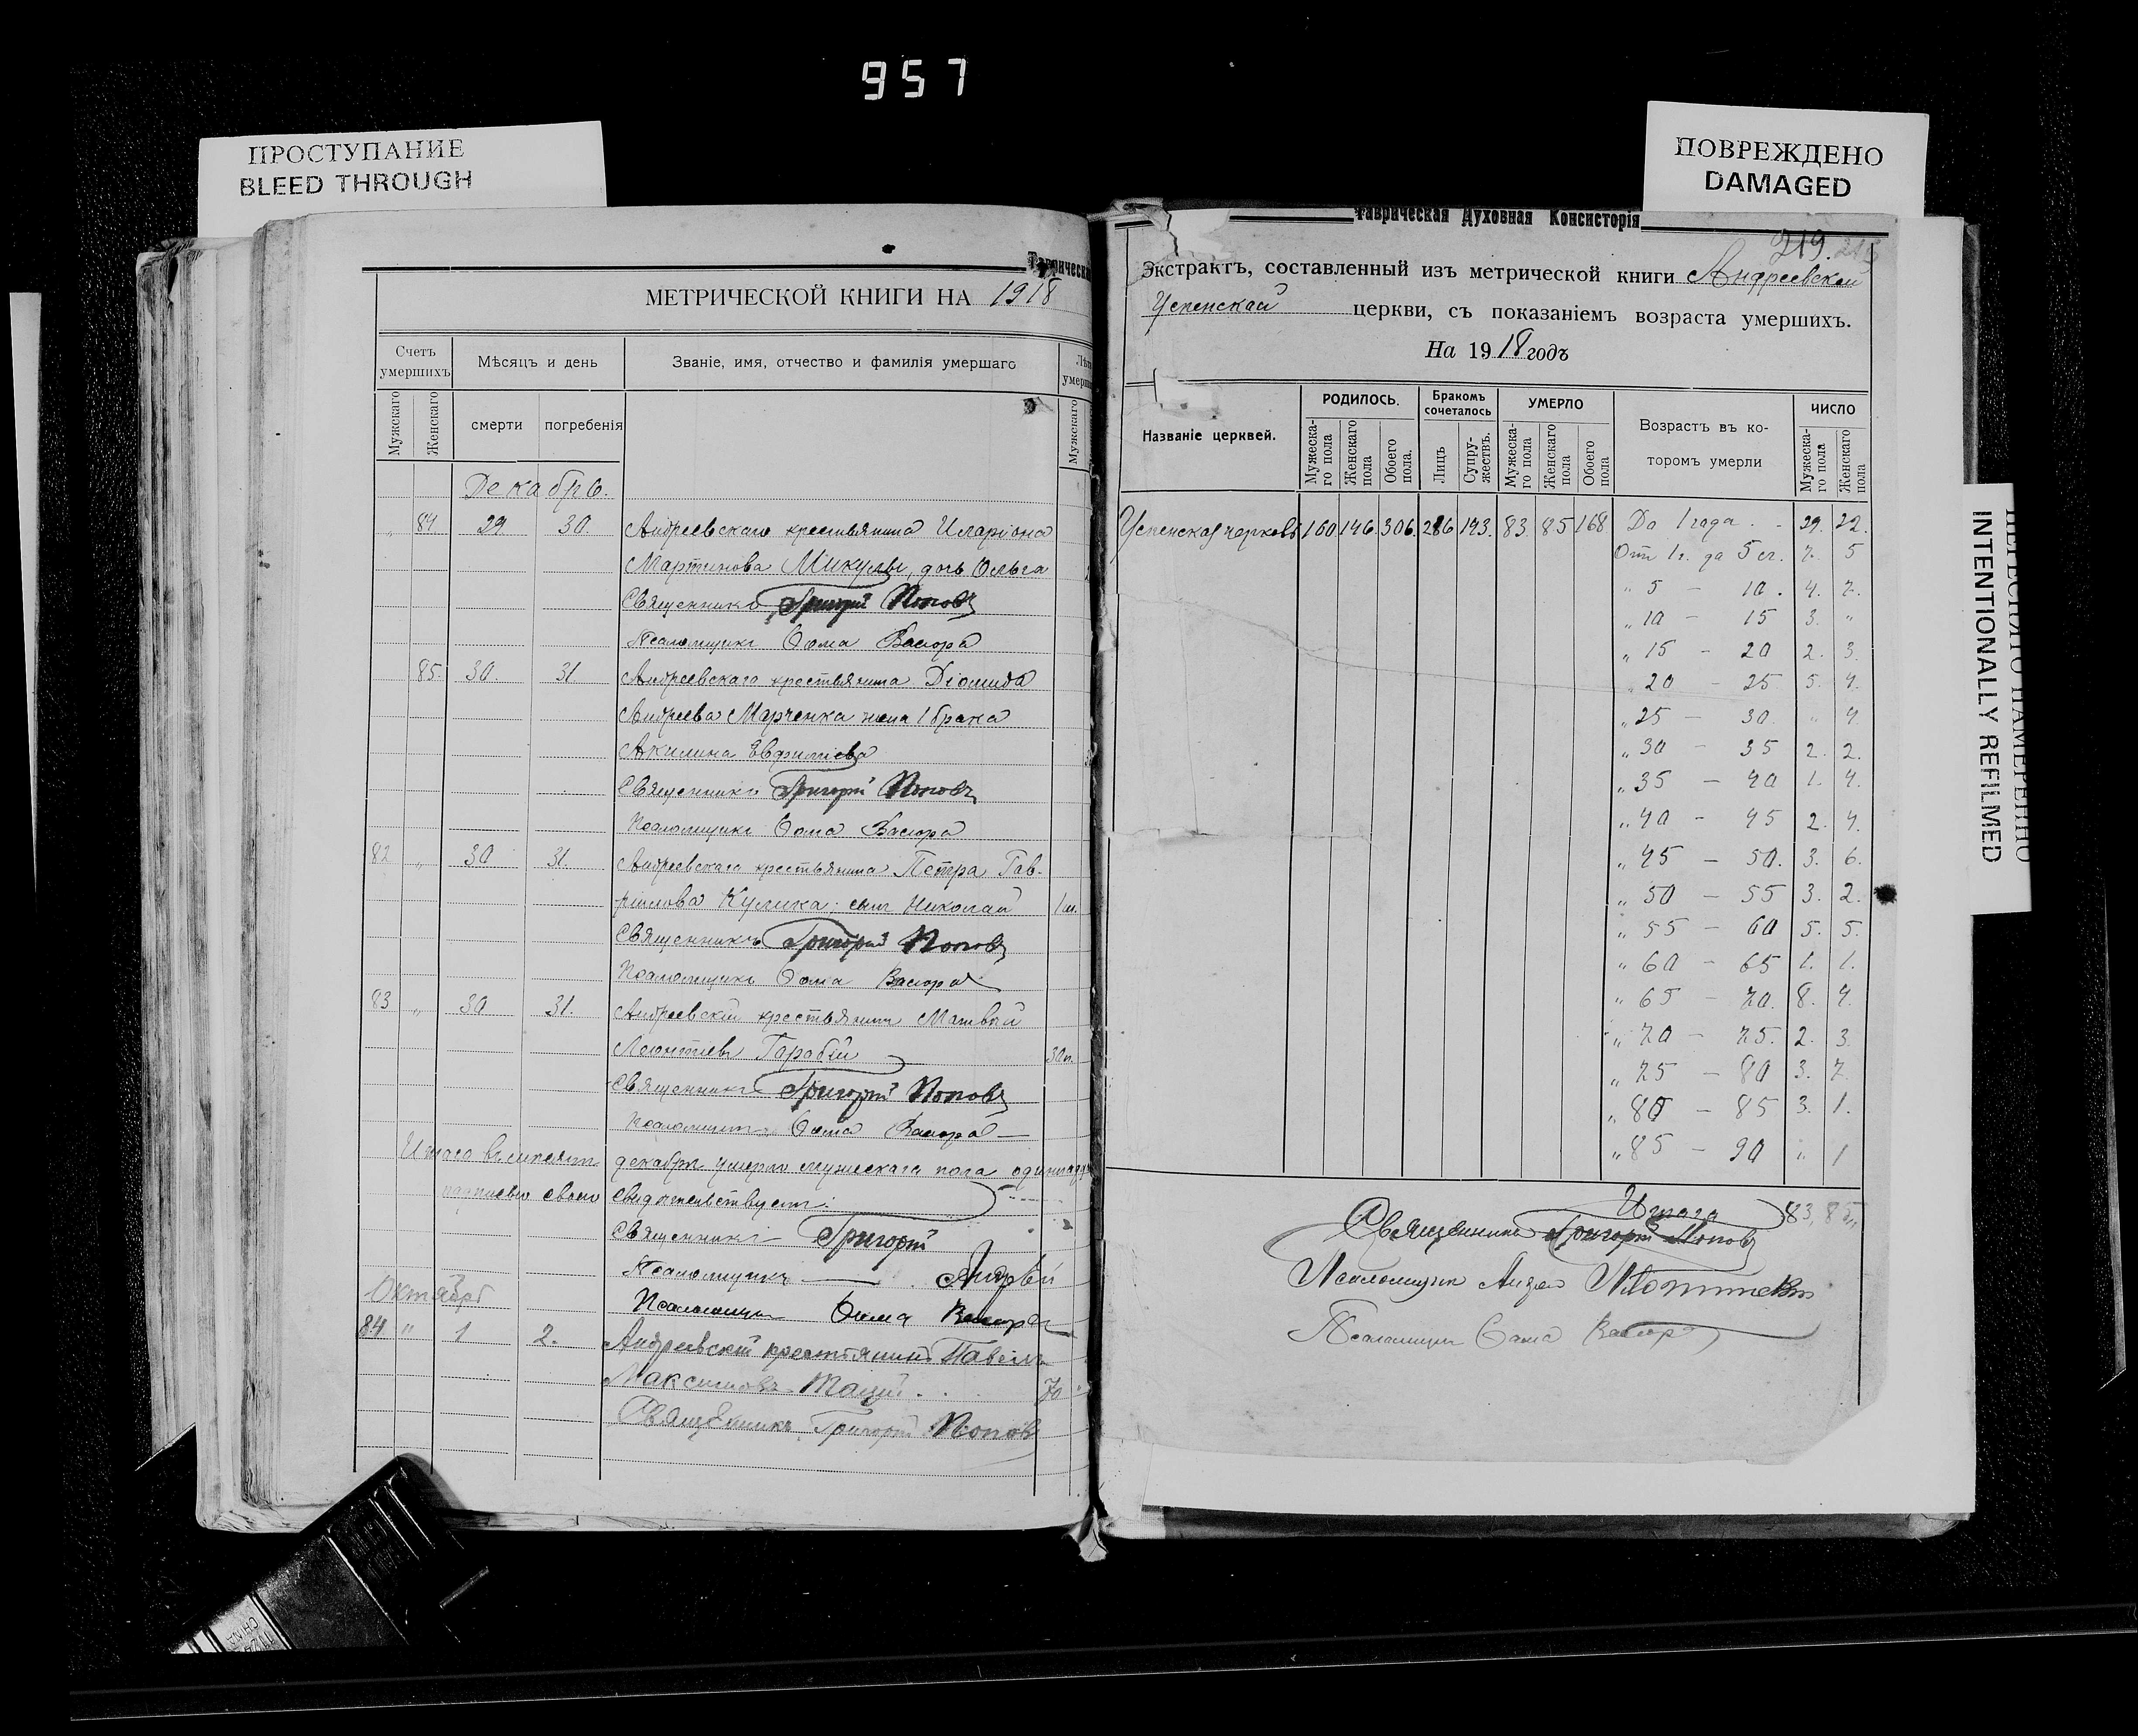 957
ПРОСТУПАНИЕ
BLEED THROUGH
ПОВРЕЖДЕНО
DAMAGED
ПЕРЕСНЯТО НАМЕРЕННО
INTENTIONALLY REFILMED
МЕТРИЧЕСКОЙ КНИГИ НА 1918
Счетъ умершихъ
Мѣсяцъ и день
Званіе, имя, отчество и фамилія умершаго
Мужскаго
Женскаго
смерти
погребенія
Мужскаго
Декабрь.
„ 84 29 30. Андреевскаго крестьянина Иларіона
Мартинова Микулы, дочь Ольга
Священникъ Григорій Поповъ
Псаломщикъ Ѳома
85. 30. 31. Андреевскаго крестьянина Діомида
Андреева Марченка жена 1 брака
Акилина Евфиміева
Священникъ Григорій Поповъ
Псаломщикъ Ѳома
82 „ 30 31. Андреевскаго крестьянина Петра Гав-
ріилова Кулика: сынъ Николай 1 м.
Священникъ Григорій Поповъ
Псаломщикъ Ѳома
83 „ 30 31. Андреевскій крестьянинъ Матвѣй
Леонтіевъ Гарабій
Священникъ Григорій Поповъ
Псаломщикъ Ѳома
Итого въ декабрѣ умерло мужескаго пола
подписью своею свидѣтельствуемъ:
Священникъ Григорій
Псаломщикъ — Андрей
Псаломщикъ Ѳома
Октябрь
84 „ 1 2. Андреевскій крестьянинъ Павелъ
Максимовъ 70
Священникъ Григорій Поповъ
Таврическая Духовная Консисторія
219.
Экстрактъ, составленный изъ метрической книги Андреевской
Успенской церкви, съ показаніемъ возраста умершихъ.
На 1918 годъ
Названіе церквей.
РОДИЛОСЬ.
Бракомъ сочеталось
УМЕРЛО
Возрастъ въ ко-
торомъ умерли
ЧИСЛО
Мужеска-
го пола
Женскаго
пола
Обоего
пола.
Лицъ
Супру-
жествъ.
Мужеска-
го пола
Женскаго
пола
Обоего
пола
Мужеска-
го пола
Женскаго
пола
Успенская церковь 160. 146. 306. 286 143. 83. 85 168 До 1 года . - 29. 22.
Отъ 1 г. до 5 л. 7. 5
„ 5 — 10. 4. 2.
„ 10 — 15 3. „
„ 15 — 20 2. 3.
„ 20 — 25 5. 4.
„ 25 — 30. „ 4
„ 30 — 35 2. 2.
„ 35 — 40 1. 4.
„ 40 — 45 2. 4.
„ 45 — 50. 3. 6.
„ 50 — 55 3. 2.
„ 55 — 60 5. 5.
„ 60 — 65 1. 1.
„ 65 — 70. 8. 4.
„ 70 — 75. 2. 3.
„ 75 — 80 3. 7.
„ 80 — 85 3. 1.
„ 85 — 90 „ 1
Итого 83, 85„
Священникъ Григорій Поповъ
Псаломщикъ Андрей
Псаломщикъ Ѳома